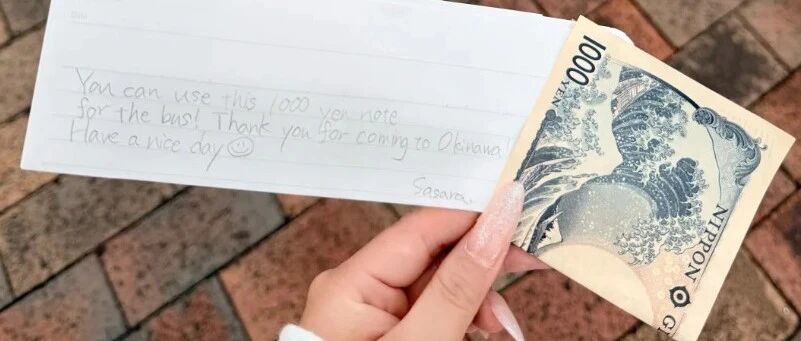 You can use this 1000 yen note
for the bus! Thank you for coming to Okinawa!
Have a nice day☺
Sasara
1000 YEN
NIPPON G